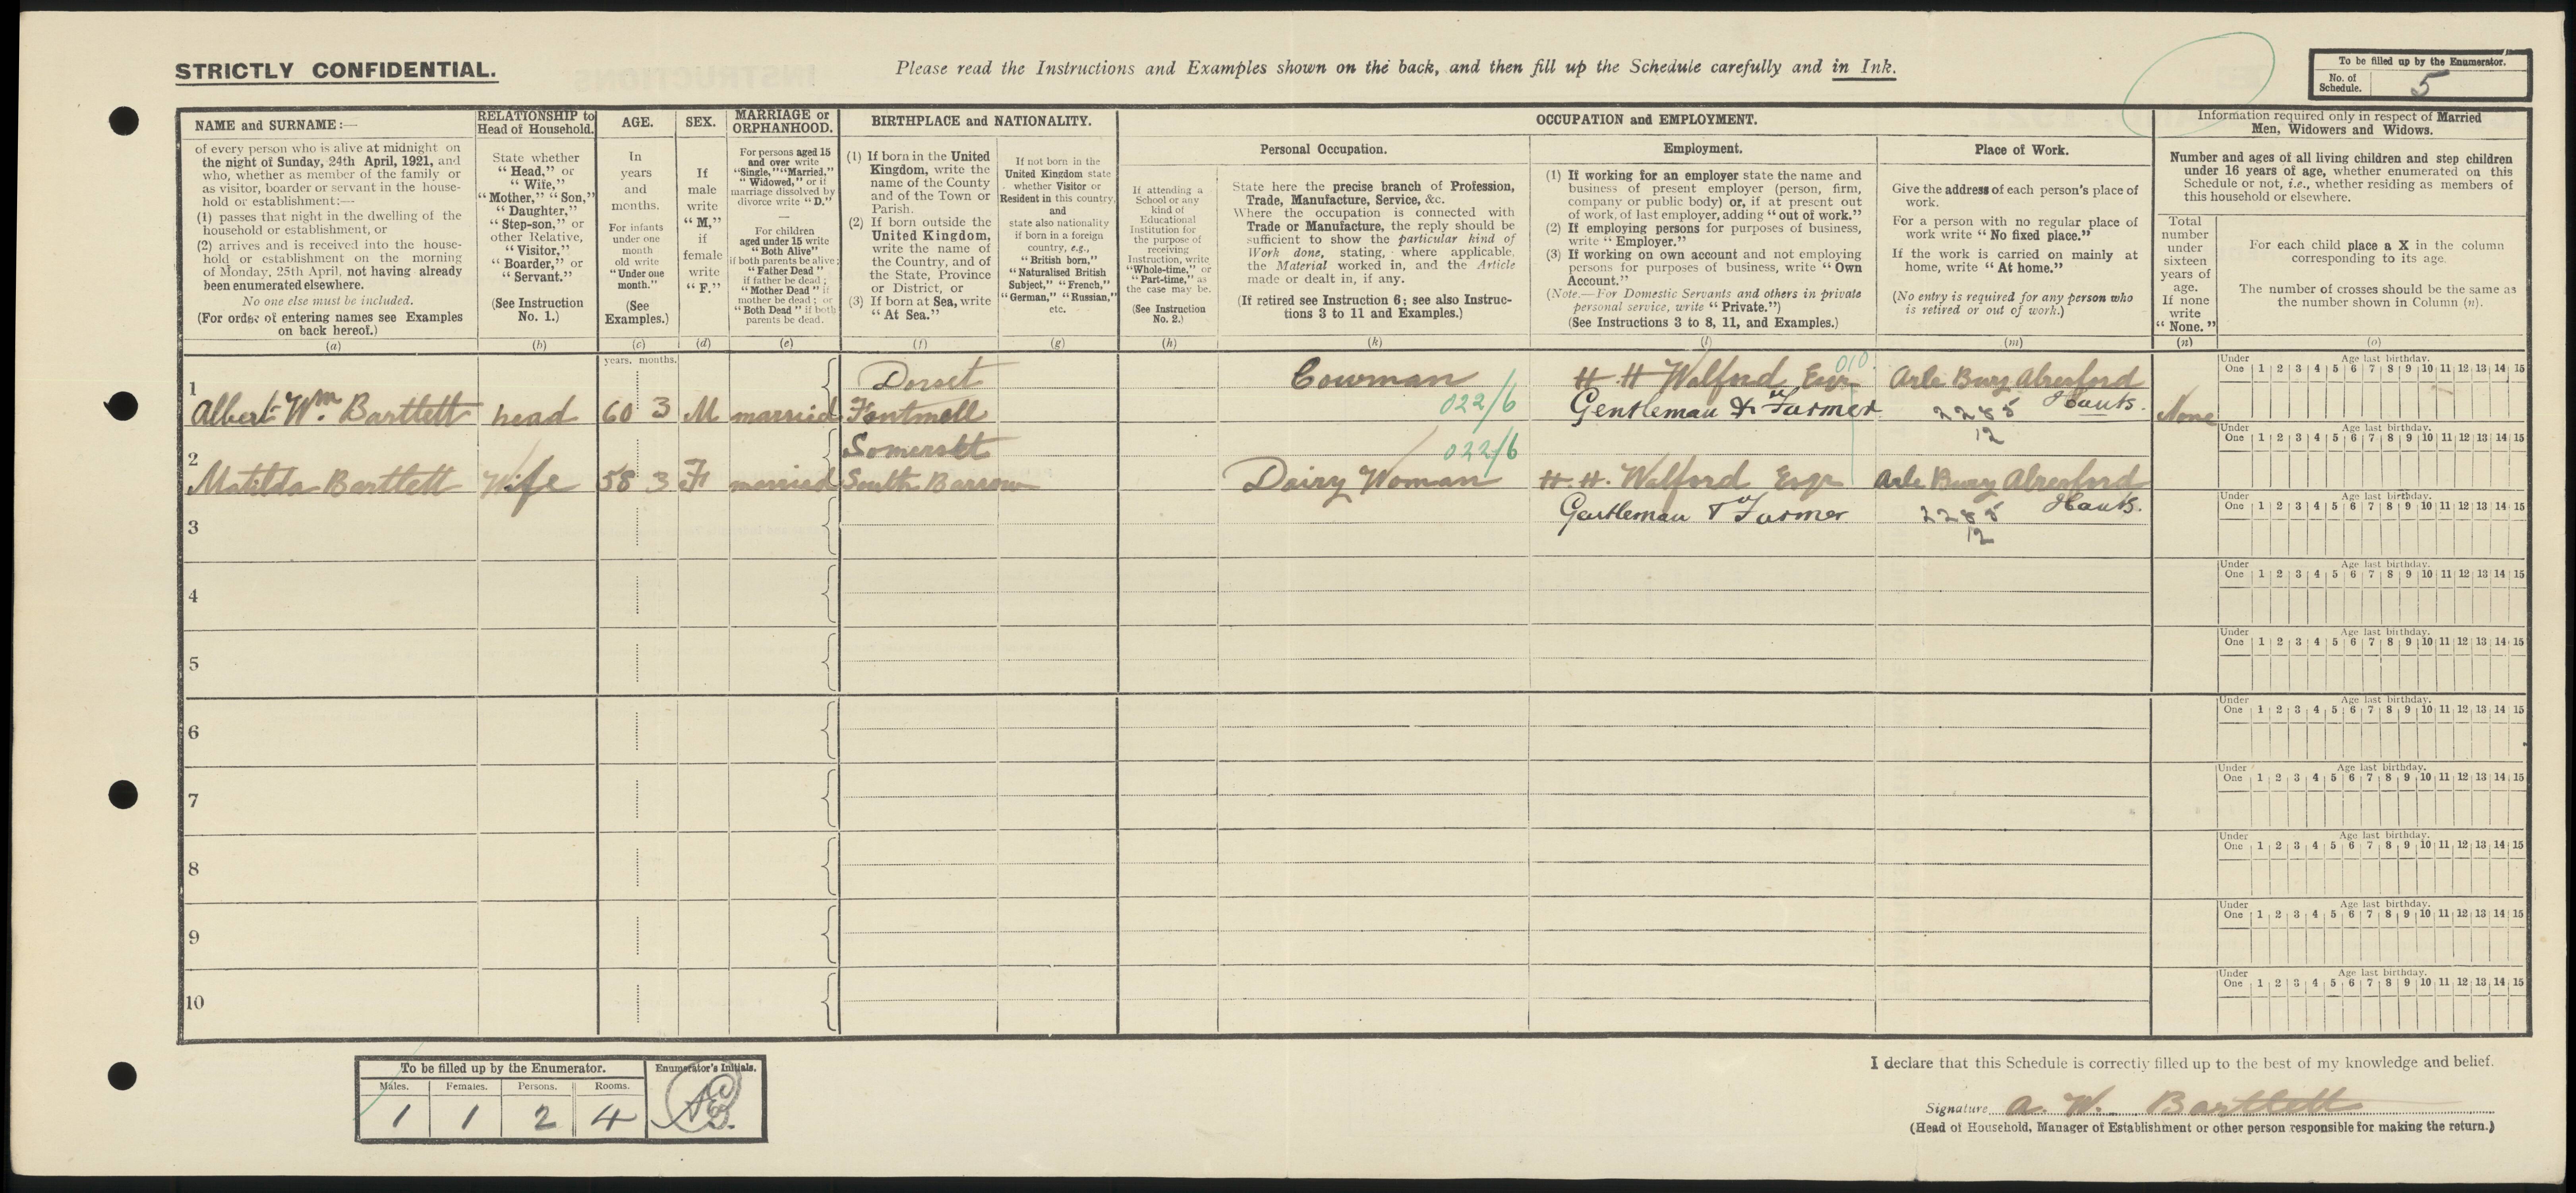 STRICTLY CONFIDENTIAL.
Please read the Instructions and Examples shown on the back, and then fill up the Schedule carefully and in Ink.
To be filled up by the Enumerator.
No. of Schedule. 5
NAME and SURNAME:—
of every person who is alive at midnight on
the night of Sunday, 24th April, 1921, and
who, whether as member of the family or
as visitor, boarder or servant in the house-
hold or establishment:—
(1) passes that night in the dwelling of the
household or establishment, or
(2) arrives and is received into the house-
hold or establishment on the morning
of Monday, 25th April, not having already
been enumerated elsewhere.
No one else must be included.
(For order of entering names see Examples
on back hereof.)
(a)
RELATIONSHIP to
Head of Household.
State whether
"Head," or
"Wife,"
"Mother," "Son,"
"Daughter,"
"Step-son," or
other Relative,
"Visitor,"
"Boarder," or
"Servant."
(See Instruction
No. 1.)
(b)
AGE.
In
years
and
months.
For infants
under one
month
old write
"Under one
month."
(See
Examples.)
(c)
SEX.
If
male
write
"M,"
if
female
write
"F."
(d)
MARRIAGE or
ORPHANHOOD.
For persons aged 15
and over write
"Single," "Married,"
"Widowed," or if
marriage dissolved by
divorce write "D."
—
For children
aged under 15 write
"Both Alive"
if both parents be alive;
"Father Dead"
if father be dead;
"Mother Dead" if
mother be dead; or
"Both Dead" if both
parents be dead.
(e)
BIRTHPLACE and NATIONALITY.
(1) If born in the United
Kingdom, write the
name of the County
and of the Town or
Parish.
(2) If born outside the
United Kingdom,
write the name of
the Country, and of
the State, Province
or District, or
(3) If born at Sea, write
"At Sea."
(f)
If not born in the
United Kingdom state
whether Visitor or
Resident in this country,
and
state also nationality
if born in a foreign
country, e.g.,
"British born,"
"Naturalised British
Subject," "French,"
"German," "Russian,"
etc.
(g)
OCCUPATION and EMPLOYMENT.
If attending a
School or any
kind of
Educational
Institution for
the purpose of
receiving
Instruction, write
"Whole-time," or
"Part-time," as
the case may be.
(See Instruction
No. 2.)
(h)
Personal Occupation.
State here the precise branch of Profession,
Trade, Manufacture, Service, &c.
Where the occupation is connected with
Trade or Manufacture, the reply should be
sufficient to show the particular kind of
Work done, stating, where applicable,
the Material worked in, and the Article
made or dealt in, if any.
(If retired see Instruction 6; see also Instruc-
tions 3 to 11 and Examples.)
(k)
Employment.
(1) If working for an employer state the name and
business of present employer (person, firm,
company or public body) or, if at present out
of work, of last employer, adding "out of work."
(2) If employing persons for purposes of business,
write "Employer."
(3) If working on own account and not employing
persons for purposes of business, write "Own
Account."
(Note.—For Domestic Servants and others in private
personal service, write "Private.")
(See Instructions 3 to 8, 11, and Examples.)
(l)
Place of Work.
Give the address of each person's place of
work.
For a person with no regular place of
work write "No fixed place."
If the work is carried on mainly at
home, write "At home."
(No entry is required for any person who
is retired or out of work.)
(m)
Information required only in respect of Married
Men, Widowers and Widows.
Number and ages of all living children and step children
under 16 years of age, whether enumerated on this
Schedule or not, i.e., whether residing as members of
this household or elsewhere.
Total
number
under
sixteen
years of
age.
If none
write
"None."
(n)
For each child place a X in the column
corresponding to its age.
The number of crosses should be the same as
the number shown in Column (n).
(o)
years. months.
Under One Age last birthday. 1 2 3 4 5 6 7 8 9 10 11 12 13 14 15
1 Albert Wm. Bartlett head 60 3 M married
Dorset
Fontmell
Cowman
022/6
H. H Walford Esqr
010
Gentleman & Farmer
Arle Bury Alresford
Hants.
2285
12
None
Under One Age last birthday. 1 2 3 4 5 6 7 8 9 10 11 12 13 14 15
2 Matilda Bartlett Wife 58 3 F married
Somerset
South Barrow
022/6
Dairy Woman
H. H. Walford Esqr
Gentleman & Farmer
Arle Bury Alresford
Hants.
2285
12
3
Under One Age last birthday. 1 2 3 4 5 6 7 8 9 10 11 12 13 14 15
4
Under One Age last birthday. 1 2 3 4 5 6 7 8 9 10 11 12 13 14 15
5
Under One Age last birthday. 1 2 3 4 5 6 7 8 9 10 11 12 13 14 15
6
Under One Age last birthday. 1 2 3 4 5 6 7 8 9 10 11 12 13 14 15
7
Under One Age last birthday. 1 2 3 4 5 6 7 8 9 10 11 12 13 14 15
8
Under One Age last birthday. 1 2 3 4 5 6 7 8 9 10 11 12 13 14 15
9
Under One Age last birthday. 1 2 3 4 5 6 7 8 9 10 11 12 13 14 15
10
Under One Age last birthday. 1 2 3 4 5 6 7 8 9 10 11 12 13 14 15
To be filled up by the Enumerator.
Males. Females. Persons. Rooms.
1 1 2 4
Enumerator's Initials.
I declare that this Schedule is correctly filled up to the best of my knowledge and belief.
Signature A. W. Bartlett
(Head of Household, Manager of Establishment or other person responsible for making the return.)